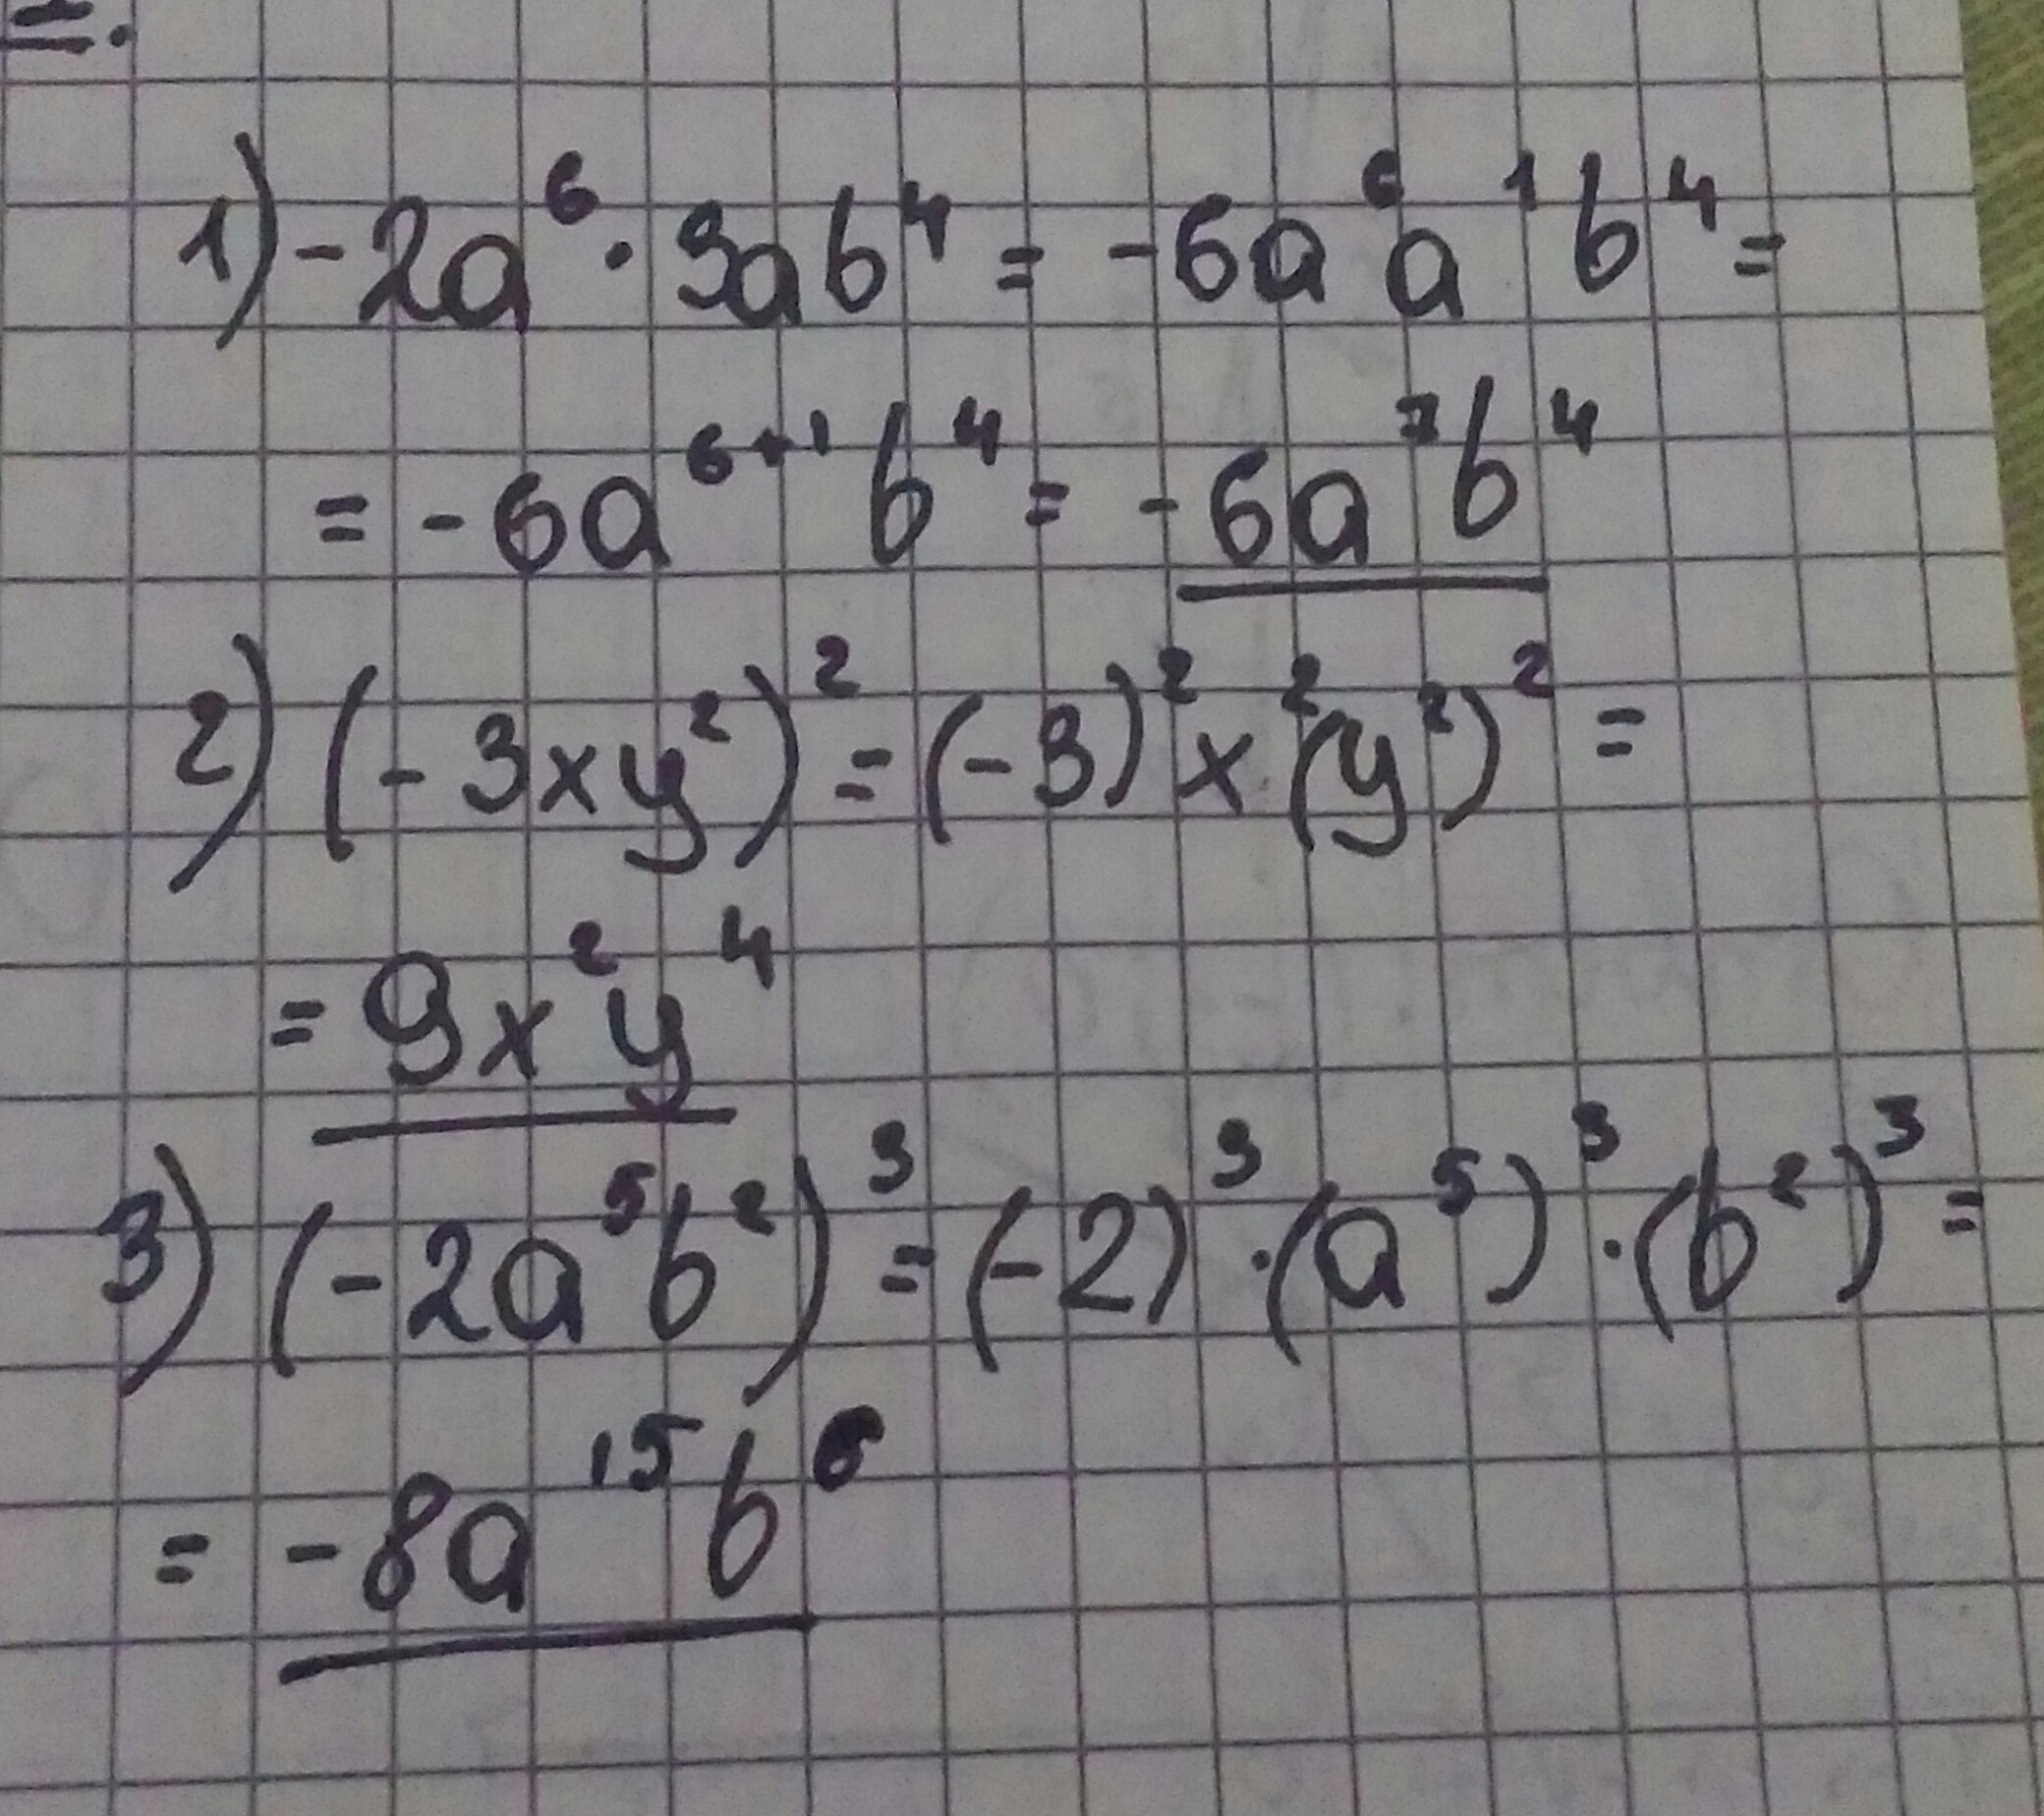 1) -2a⁶ · 3ab⁴ = -6a⁶a¹b⁴ =
= -6a⁶⁺¹b⁴ = -6a⁷b⁴
2) (-3xy²)² = (-3)²x²(y²)² =
= 9x²y⁴
3) (-2a⁵b²)³ = (-2)³·(a⁵)³·(b²)³ =
= -8a¹⁵b⁶